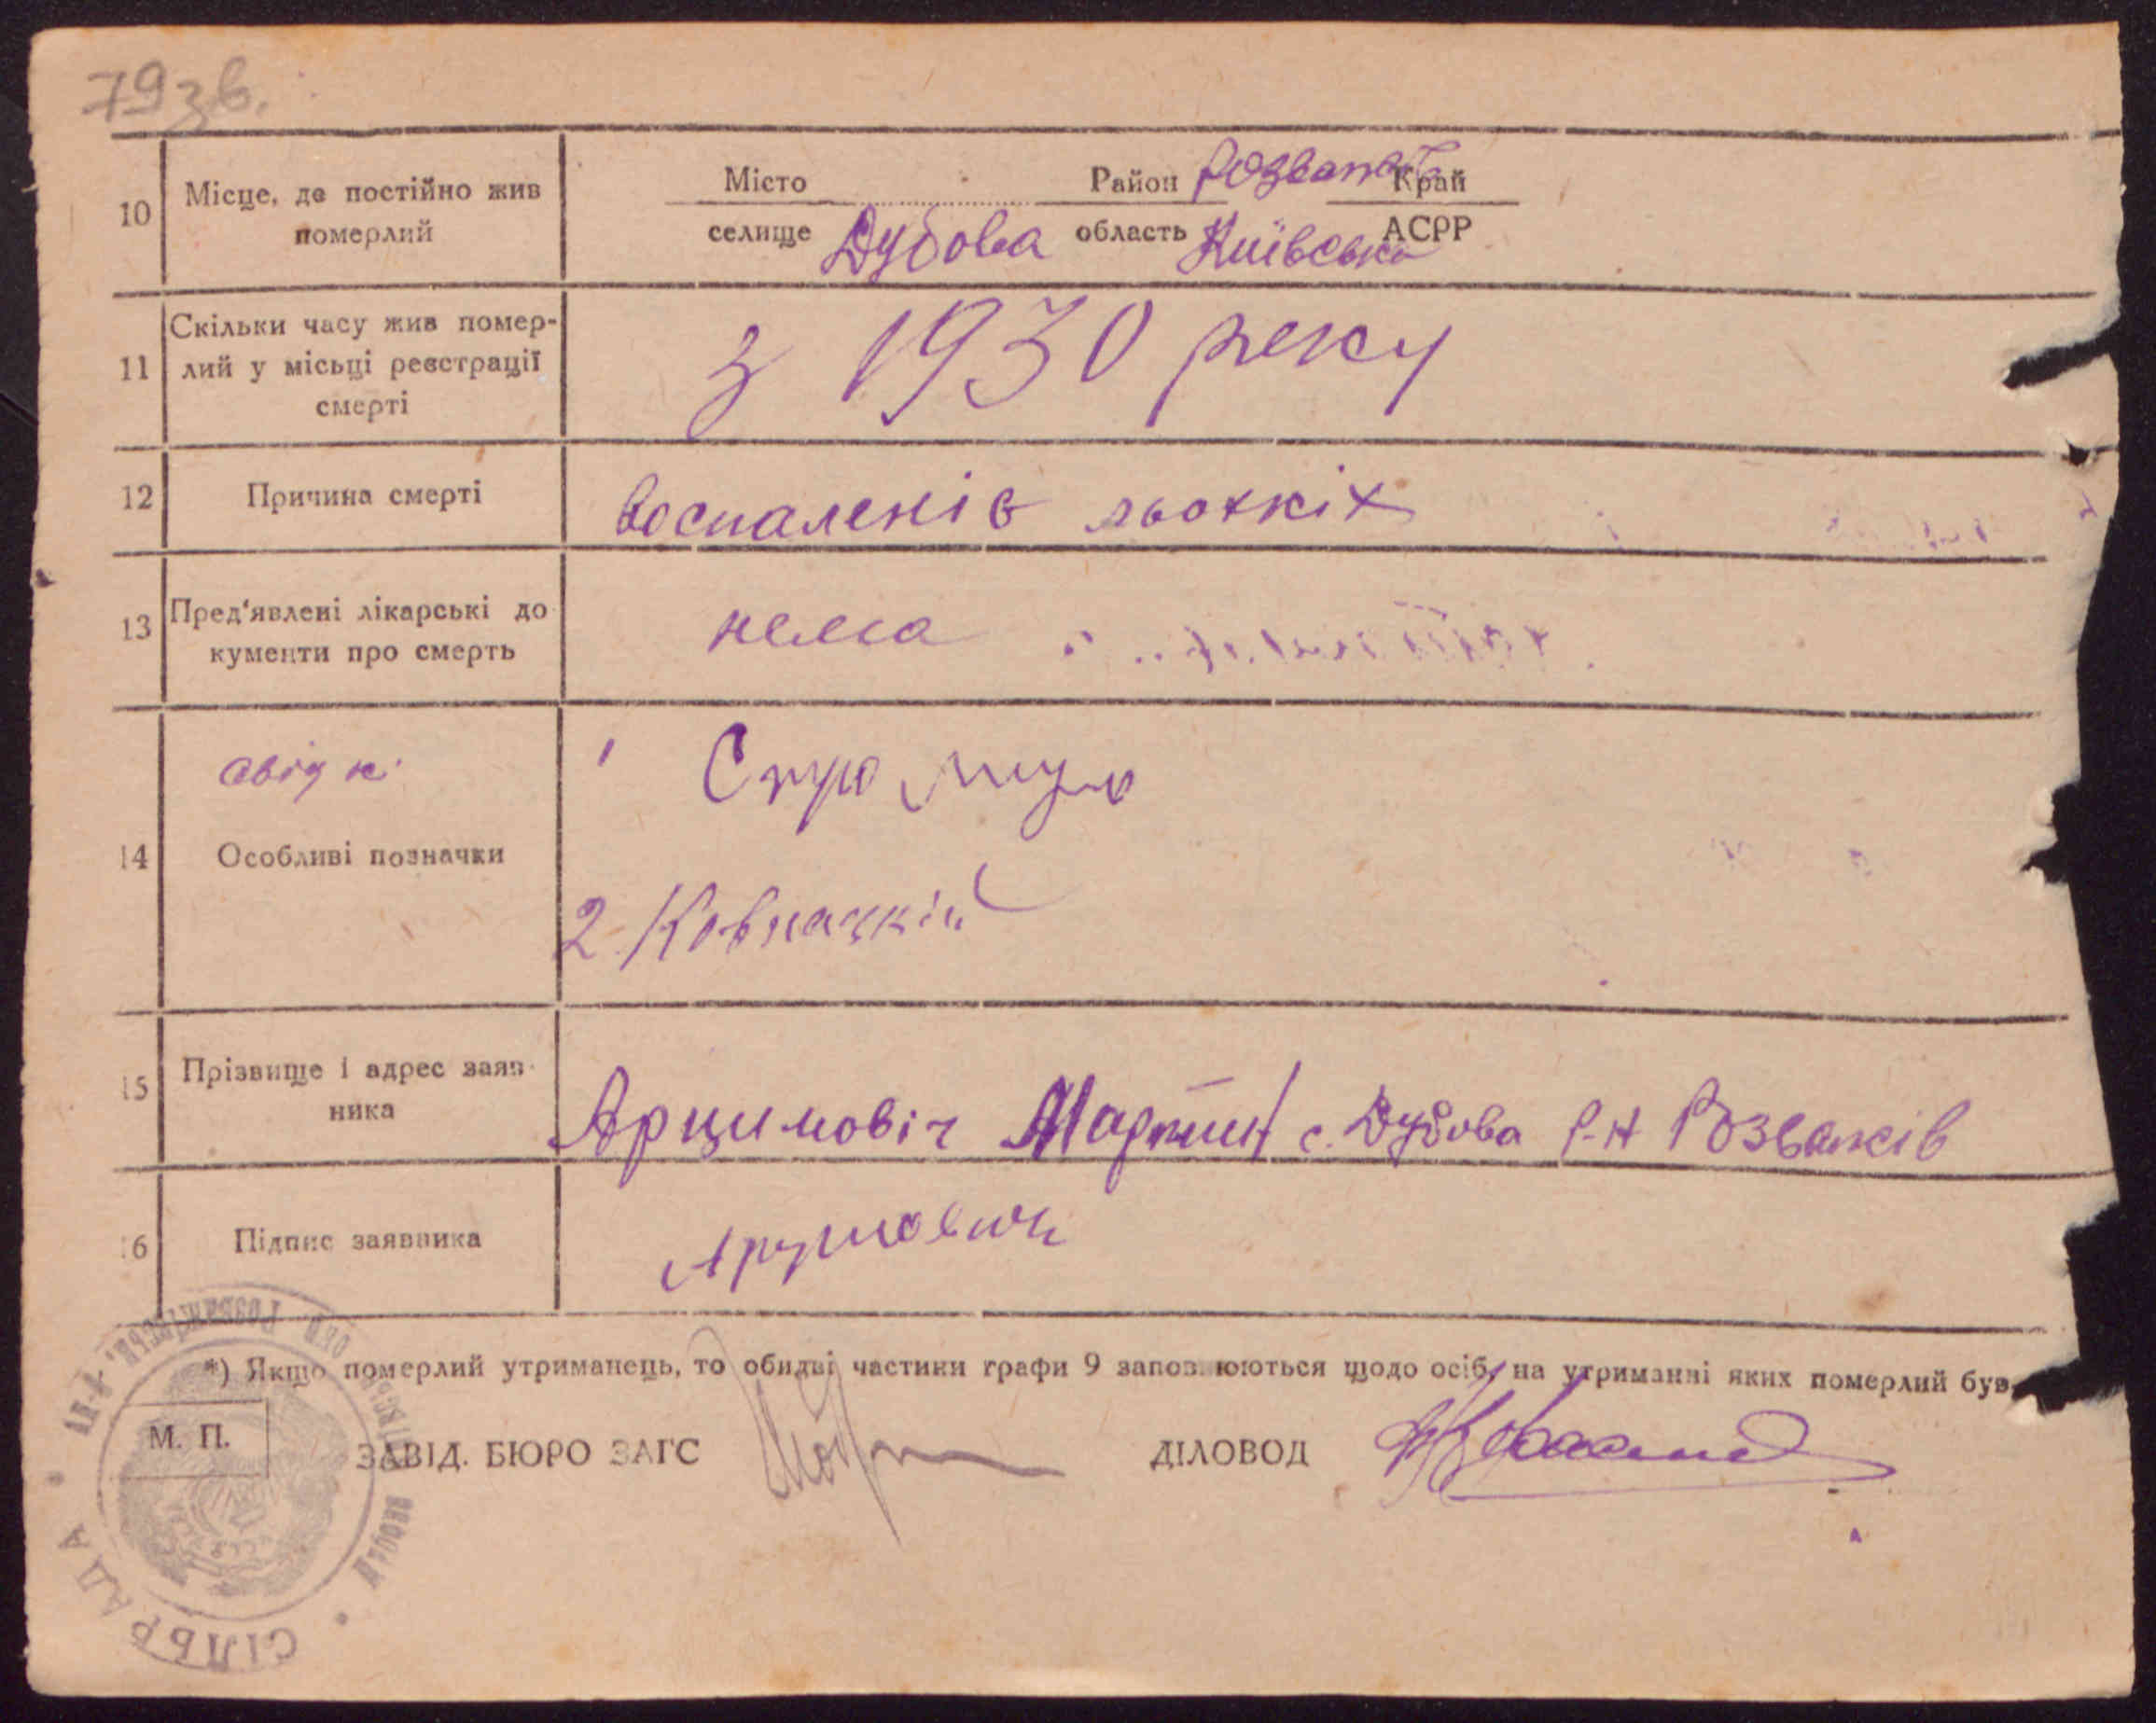 79 зв.
10 Місце, де постійно жив померлий
Місто Район Розваж Край
селище Дубова область Київська АСРР
11 Скільки часу жив помер-
лий у місьці реєстрації
смерті
з 1930 року
12 Причина смерті
Воспаленіє льохкіх
13 Пред'явлені лікарські до
кументи про смерть
нема
свідк
14 Особливі позначки
1
2
15 Прізвище і адрес заяв-
ника
Арцимовіч Мартин с. Дубова р-н Розважів
16 Підпис заявника
Арцимович
*) Якщо померлий утриманець, то обидві частини графи 9 заповнюються щодо осіб, на утриманні яких померлий був.
М. П.
ЗАВІД. БЮРО ЗАГС
ДІЛОВОД
СІЛЬРАДА